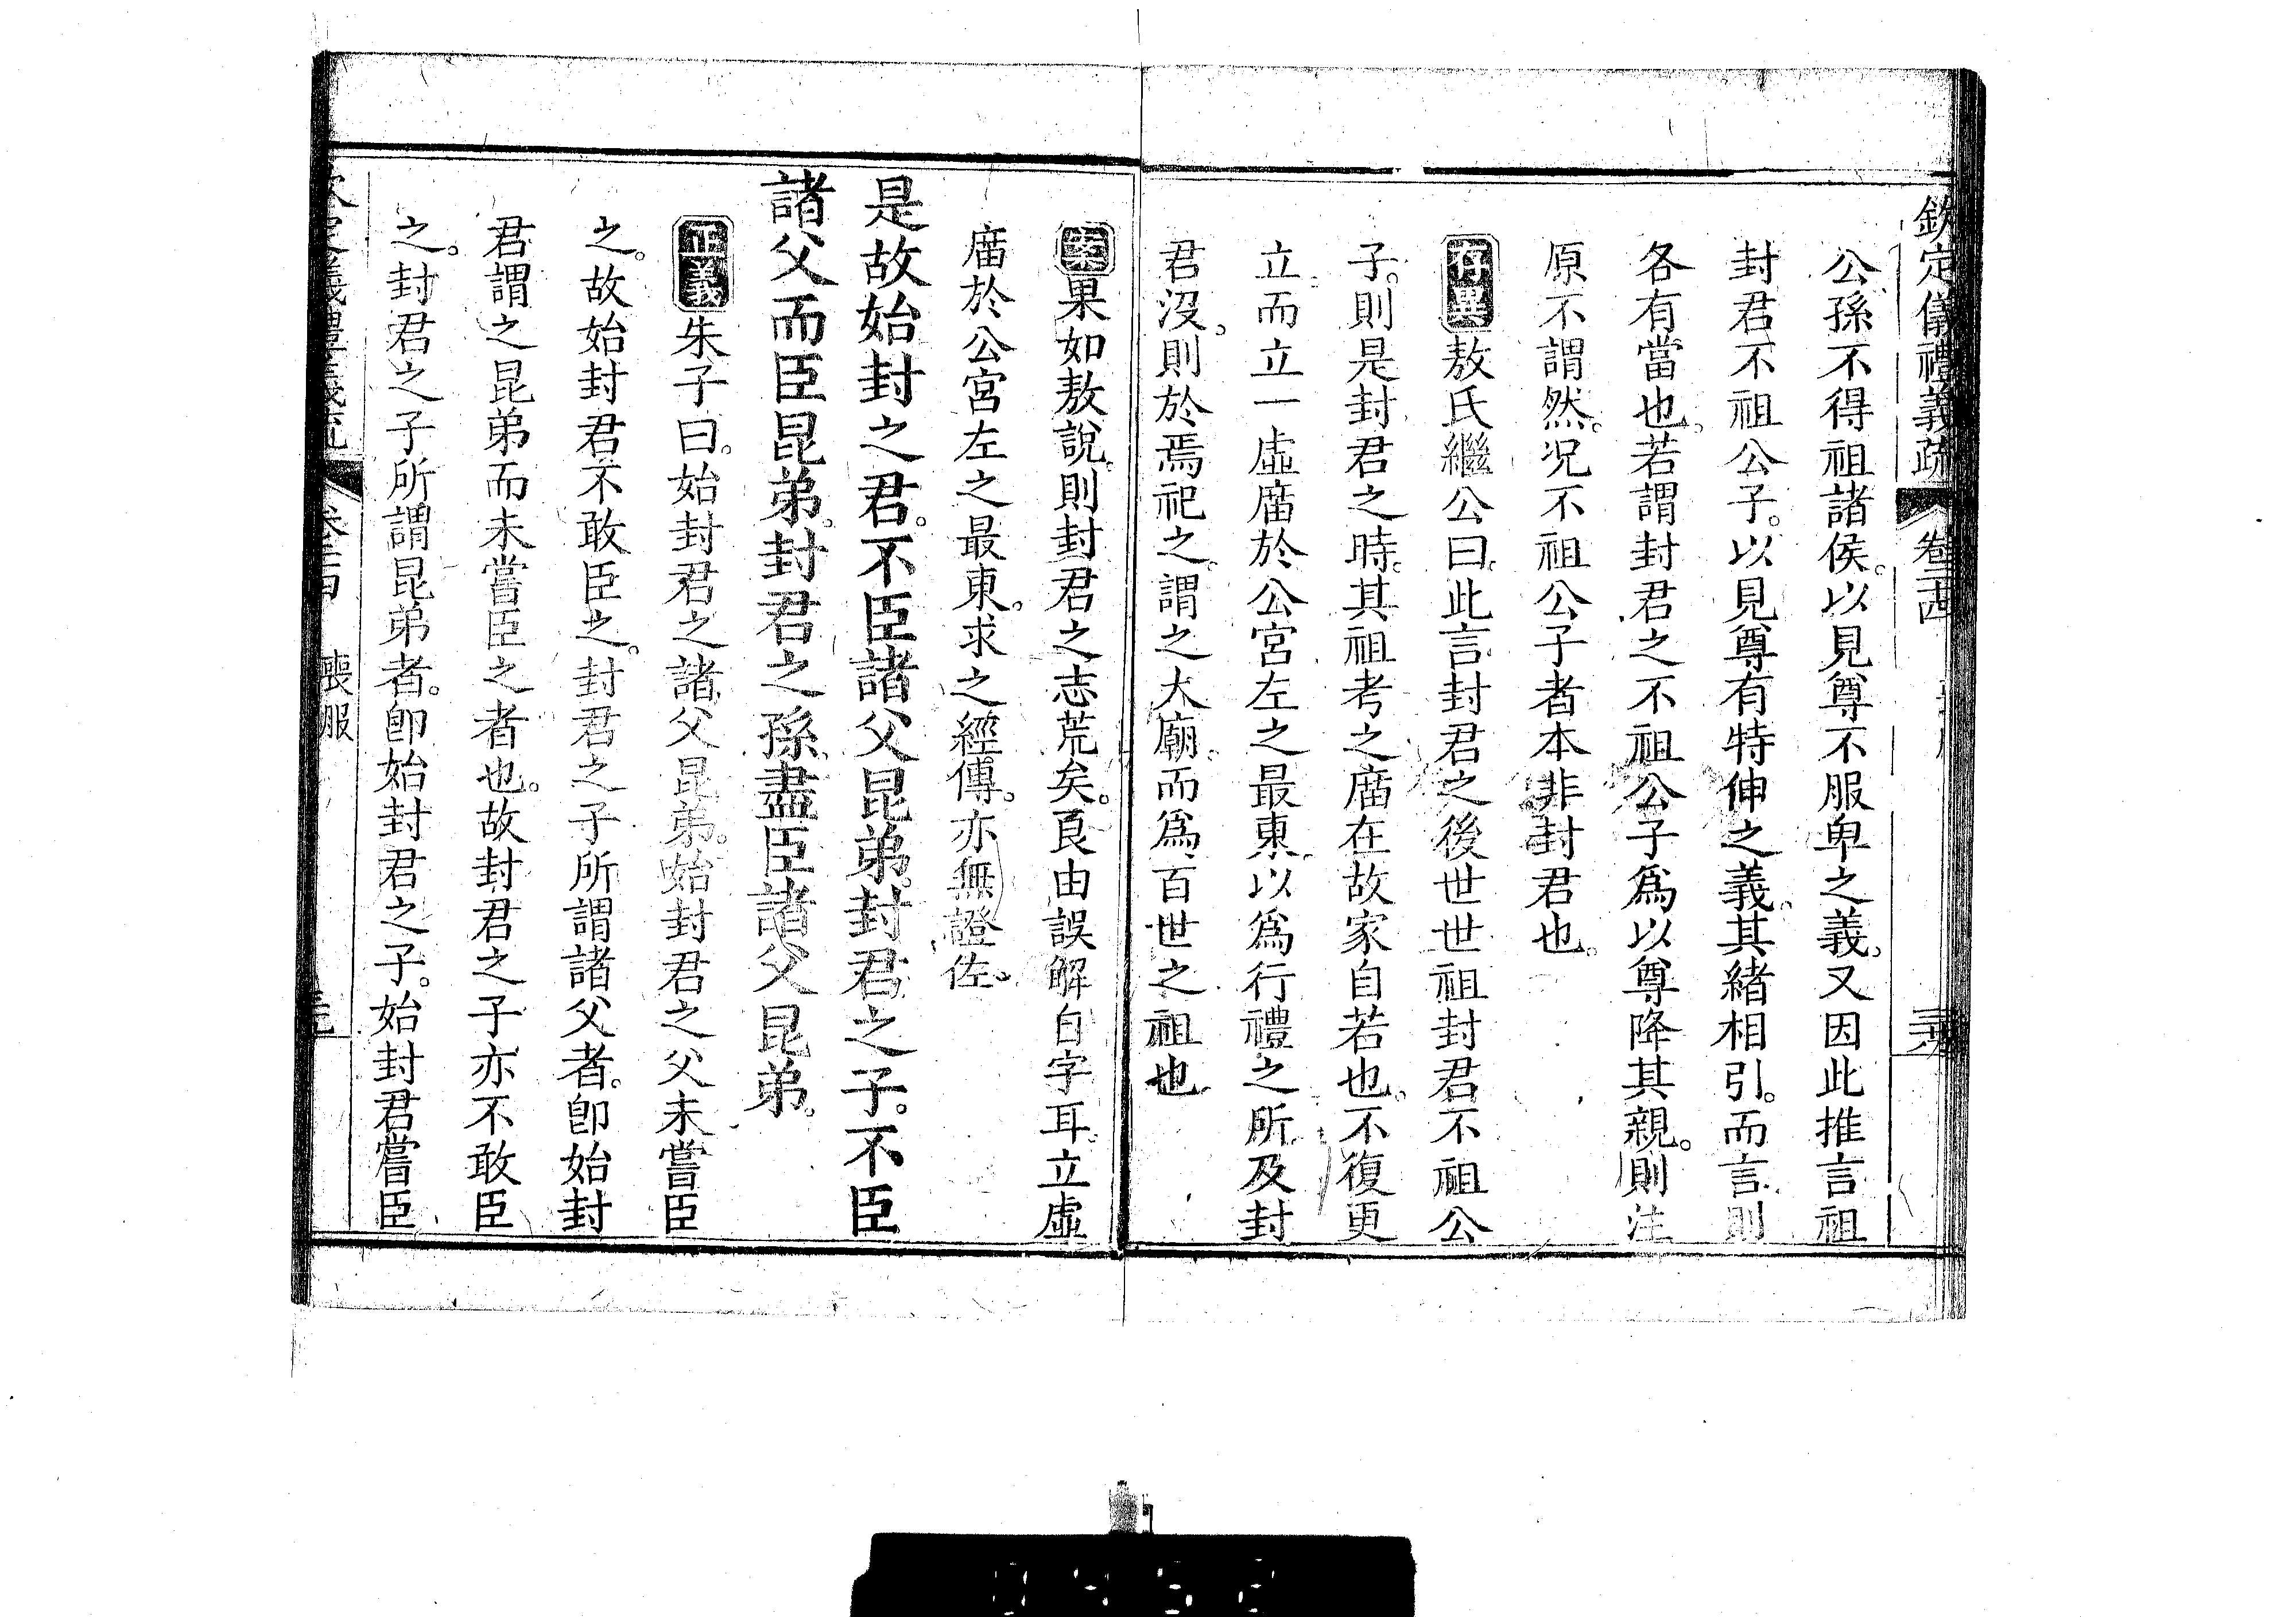 欽定儀禮義疏 卷二十四
公孫不得祖諸侯。以見尊不服卑之義。又因此推言祖
封君不祖公子。以見尊有特伸之義。其緒相引。而言則
各有當也。若謂封君之不祖公子爲以尊降其親。則注
原不謂然。况不祖公子者本非封君也。
存異敖氏繼公曰。此言封君之後世世祖封君不祖公
子。則是封君之時。其祖考之廟在故家自若也。不復更
立而立一虛廟於公宮左之最東。以爲行禮之所及封
君沒。則於焉祀之。謂之大廟。而爲百世之祖也
案果如敖說。則封君之志荒矣。良由誤解自字耳。立虛
廟於公宮左之最東。求之經傳。亦無證佐。
是故始封之君。不臣諸父昆弟。封君之子。不臣
諸父而臣昆弟。封君之孫。盡臣諸父昆弟。
正義朱子曰。始封君之諸父昆弟。始封君之父未嘗臣
之。故始封君不敢臣之。封君之子所謂諸父者。卽始封
君謂之昆弟而未嘗臣之者也。故封君之子亦不敢臣
之。封君之子所謂昆弟者。卽始封君之子。始封君嘗臣
喪服